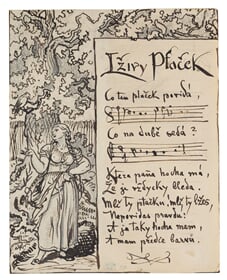 Lživy Ptaček
Co ten ptaček povida,
Co na dubě seda?
Ktera paňa hocha má,
že je vždycky bleda.
Mlč ty ptačku, mlč, ty lžeš,
Nepovidaš pravdu:
A ja taky hocha mam,
A mam přece barvu.